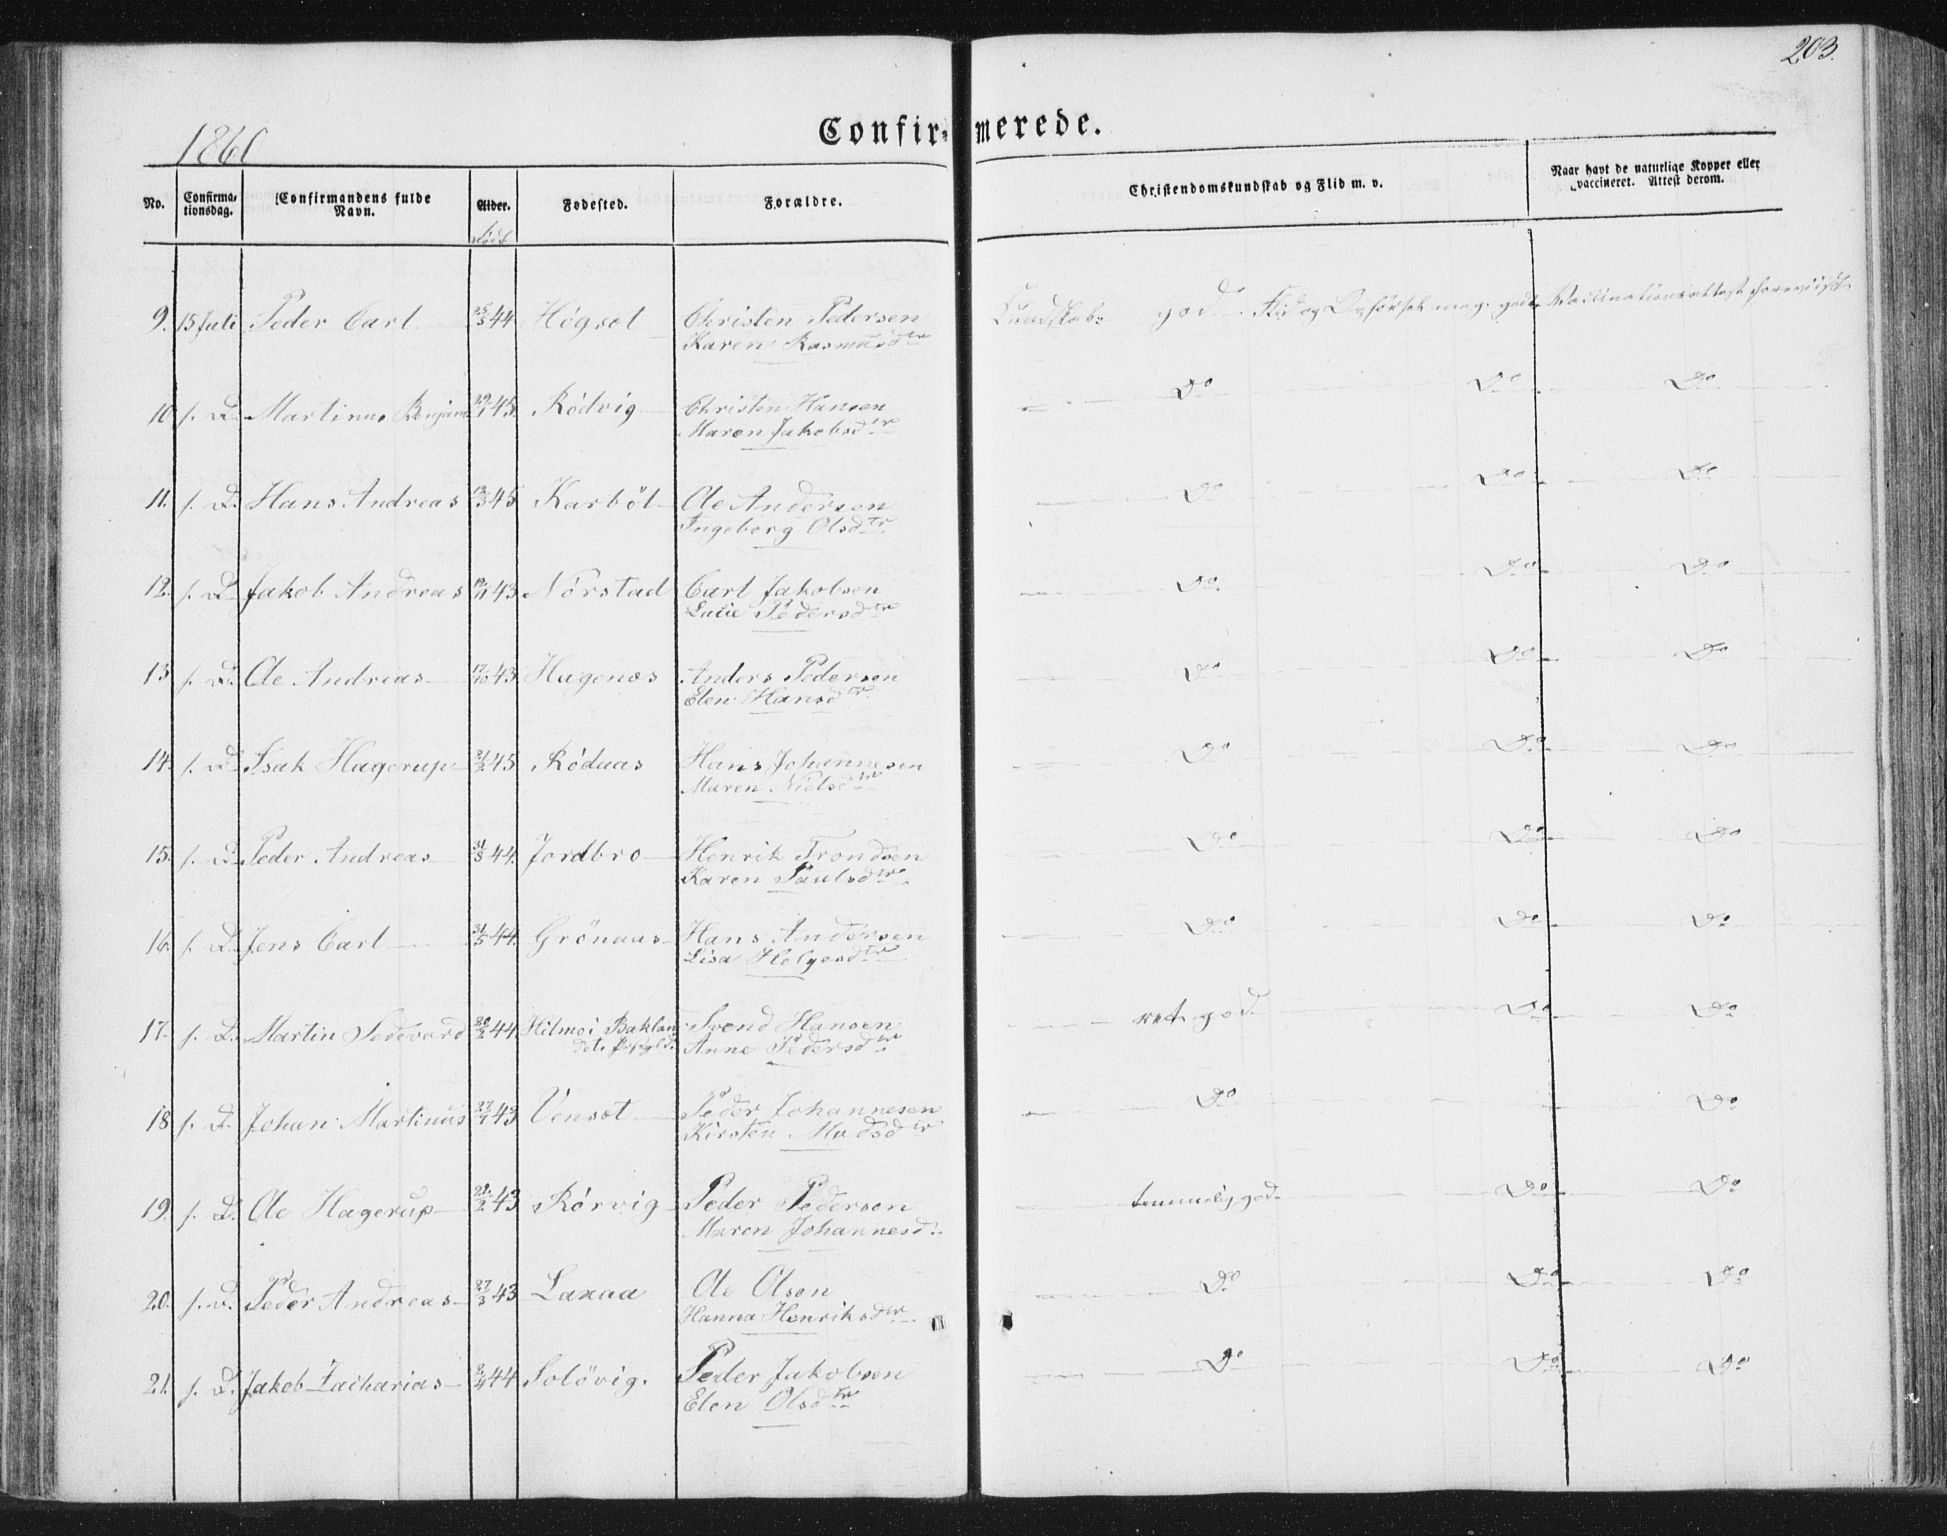 203.
1860
Confirmerede.
No. Confirmationsdag. Confirmandens fulde Navn. Alder. Fødested. Forældre. Christendomskundskab og Flid m. v. Naar havt de naturlige Kopper eller vaccineret. Attest derom.
født
9. 15 Juli Peder Carl 25/3 44 Högset Christen Pedersen Kundskab: god. Flid og Opförsel meg. god. Vaccinationsattest foreviist
Karen Rasmusdtr
10. s. D. Martinus Benjam 29/1 45 Rödvig Christen Hansen Do Do Do
Maren Jakobsdtr
11. s. D. Hans Andreas 45 Karböl Ole Andersen Do Do Do
Ingeborg Olsdtr
12. s. D. Jakob Andreas 43 Nörstad Carl Jakobsen Do Do Do
Pedersdtr
13. s. D. Ole Andreas 17/10 43 Hagenæs Anders Pedersen Do Do Do
Elen Hansdtr
14. s. D. Isak Hagerup 45 Rödaas Hans Johannesen Do Do Do
Maren Nielsdtr
15. s. D. Peder Andreas 31/3 44. Jordbro Henrik Trondsen Do Do Do
Karen Paulsdtr
16. s. D. Jens Carl 31/5 44. Grönaas Hans Andersen Do Do Do
Lisa Helgesdtr
17. s. D. Martin Sedevard 44. Hilmoi Baklan Svend Hansen ret god. Do Do
det. Anne Pedersdtr
18 s. D. Johan Martinus 43 Venset Peder Johannesen Do Do
Kirsten Madsdtr
19. s. D. Ole Hagerup 22/2 43 Rörvig Peder Pedersen temmelig god. Do Do
Maren Johannesd.
20. s. D. Peder Andreas 27/3 43 Laxaa Ole Olsen Do Do Do
Hanna Henriksdtr
21. s. D. Jakob Zacharias 44 Solövig. Peder Jakobsen Do Do Do
Elen Olsdtr